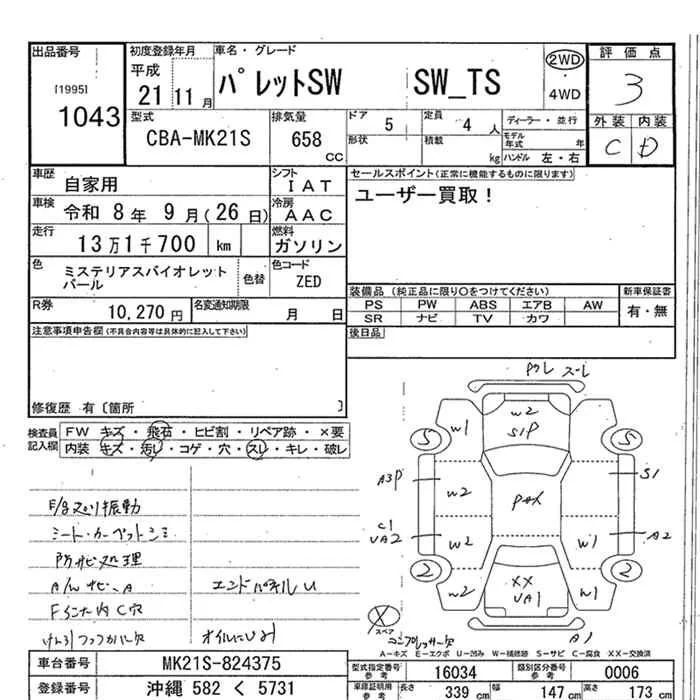 出品番号
[1995]
1043
初度登録年月
平成
21 11 月
車名・グレード
パレットSW SW_TS
2WD
・
4WD
評価点
3
外装 内装
C D
型式
CBA-MK21S
排気量
658
CC
ドア
5
形状
定員
4 人
積載
kg
ディーラー・並行
モデル年式 年
ハンドル 左・右
車歴
自家用
シフト
IAT
車検
令和 8年 9月(26日)
冷房
AAC
走行
13万1千700 km
燃料
ガソリン
色
ミステリアスバイオレット
パール
色替
色コード
ZED
R券
10,270円
名変通知期限
月 日
セールスポイント(正常に機能するものに限ります)
ユーザー買取!
装備品 (純正品に限り〇をつけてください)
PS PW ABS エアB AW
SR ナビ TV カワ
新車保証書
有・無
後日品
注意事項申告欄(不具合内容等は具体的に記入して下さい)
修復歴 有〔箇所 〕
検査員
記入欄
FW キズ・飛石・ヒビ割・リペア跡・×要
内装 キズ・汚レ・コゲ・穴・スレ・キレ・破レ
シート・カーペットシミ
防サビ処理
A/Wサビ、A
エンドパネルU
W2
S1P
W1
S
S
A3P
W2
S1
C1
UA2
W2
W1
A2
2
2
W2
XX
UA1
W1
スペア
A1
コンプレッサー欠
A-キズ E-エクボ U-凹み W-補修跡 S-サビ C-腐食 XX-交換済
車台番号
MK21S-824375
登録番号
沖縄 582 く 5731
型式指定番号
参考
16034
類別区分番号
参考
0006
車庫証明用
参考
長さ
339 cm
幅
147 cm
高さ
173 cm